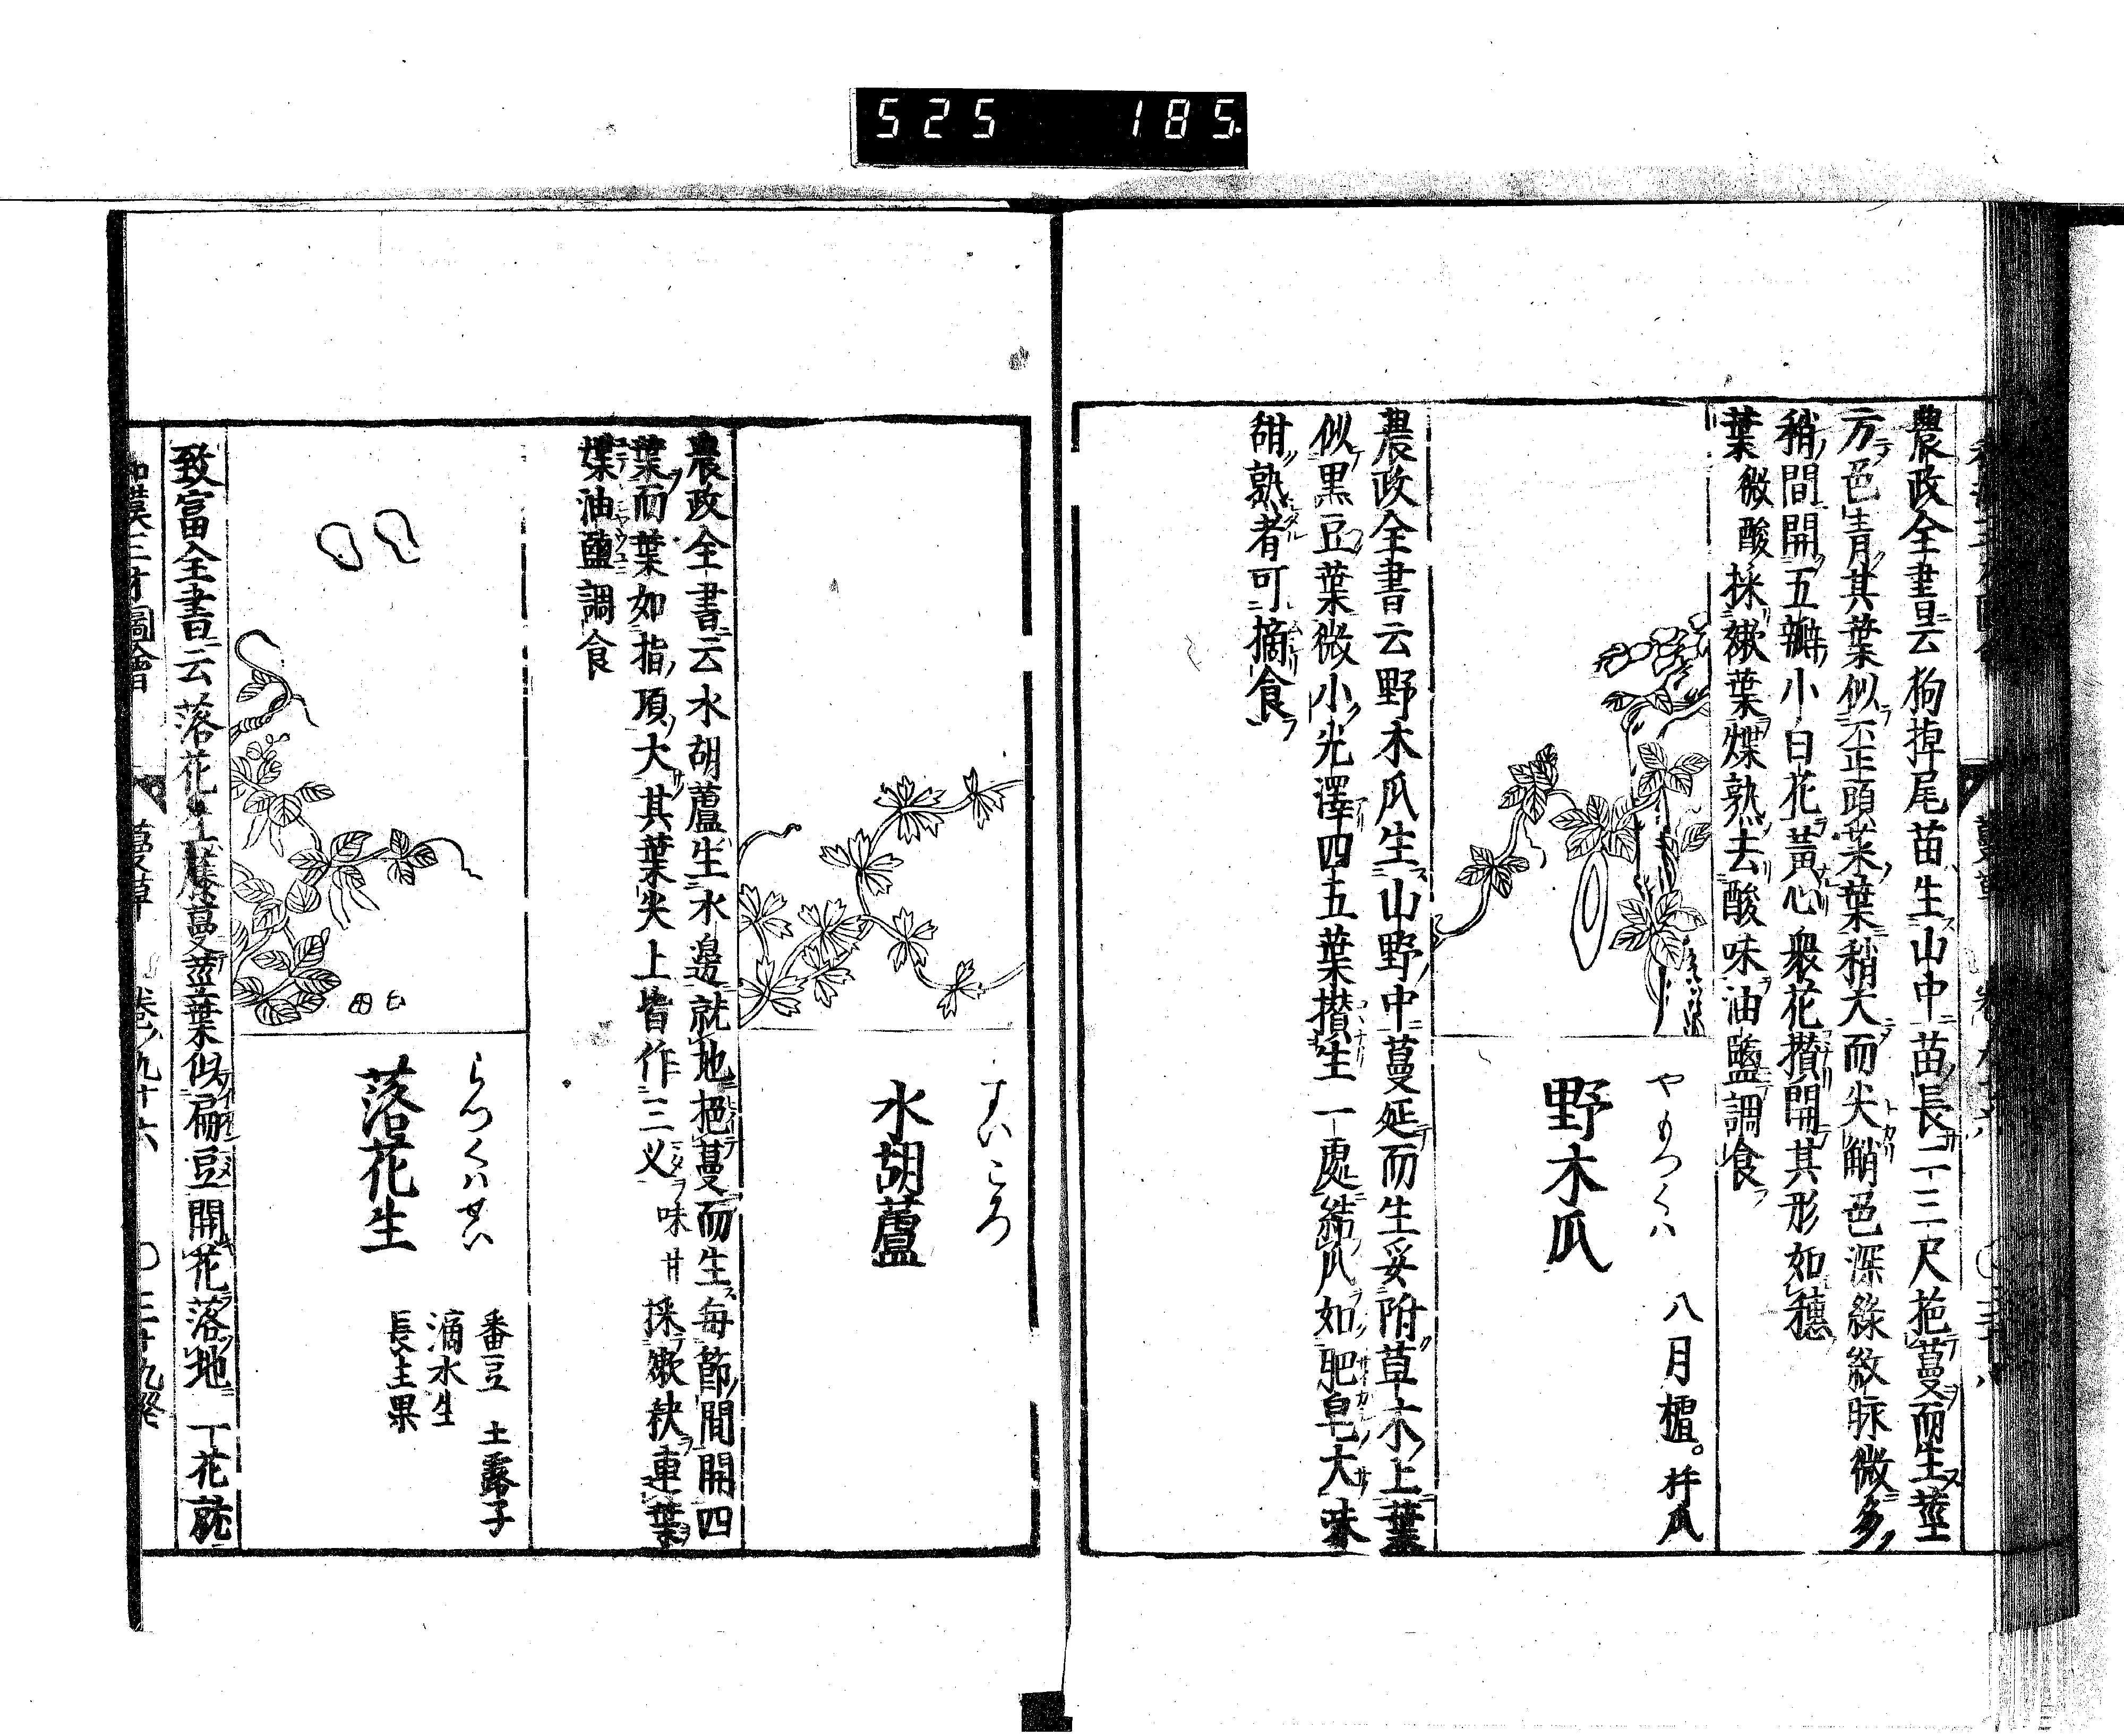 525 185.
農政全書云狗掉尾苗生山中苗長二三尺拖蔓而生莖
方色青其葉似歪頭菜葉稍大而尖艄色深綠紋脉微多
稍間開五瓣小白花黃心衆花攅開其形如穗
葉微酸採嫩葉煠熟去酸味油鹽調食
やもつくハ
八月樝。
野木瓜
農政全書云野木瓜生山野中蔓延而生妥附草木上葉
似黒豆葉微小光澤四五葉攅生一處結瓜如肥皂大味
甜熟者可摘食
すいころ
水胡蘆
農政全書云水胡蘆生水邊就地拖蔓而生毎節間開四
葉而葉如指頂大其葉尖上皆作三义味甘採嫩秧連葉
煠油鹽調食
らつくハせい
落花生
番豆 土露子
滴水生
長生果
致富全書云落花生藤蔓莖葉似扁豆開花落地一花就
和漢三才圖會 蔓草 卷ノ九十六 〇三十九